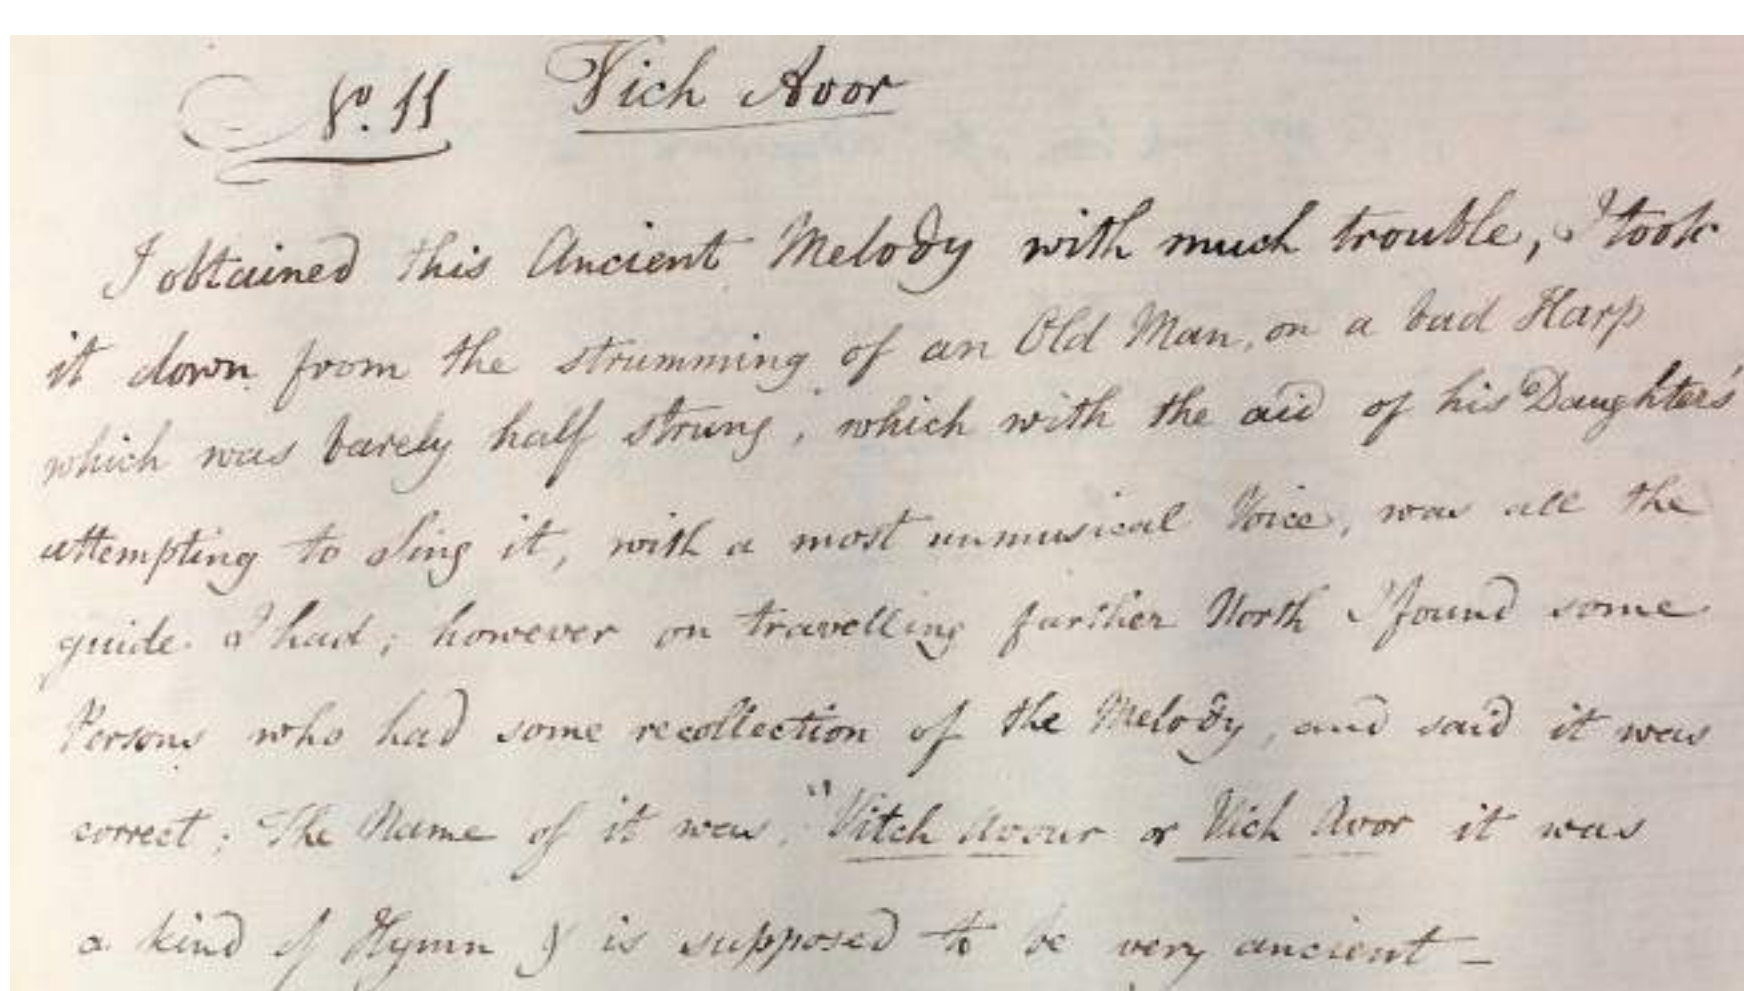 No. 11 Vich Avor
I obtained this Ancient Melody with much trouble, I took
it down from the strumming of an Old Man, on a bad Harp
which was barely half strung, which with the aid of his Daughter's
attempting to sing it, with a most unmusical Voice, was all the
guide I had; however on travelling further North I found some
Persons who had some recollection of the Melody, and said it was
correct; The Name of it was "Vitch Avour or Vich Avor it was
a kind of Hymn & is supposed to be very ancient –